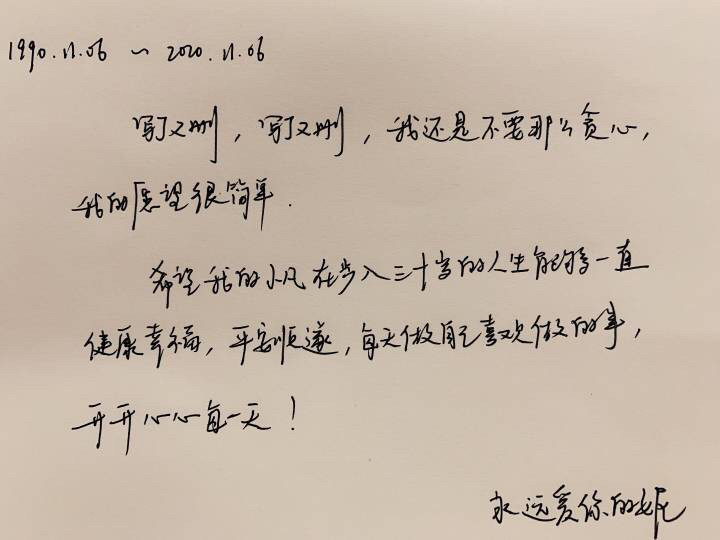 1990.11.06 ~ 2020.11.06
写了又删，写了又删，我还是不要那么贪心，
我的愿望很简单.
希望我的小凡在步入三十岁的人生能够一直
健康幸福，平安顺遂，每天做自己喜欢做的事，
开开心心每一天！
永远爱你的妮